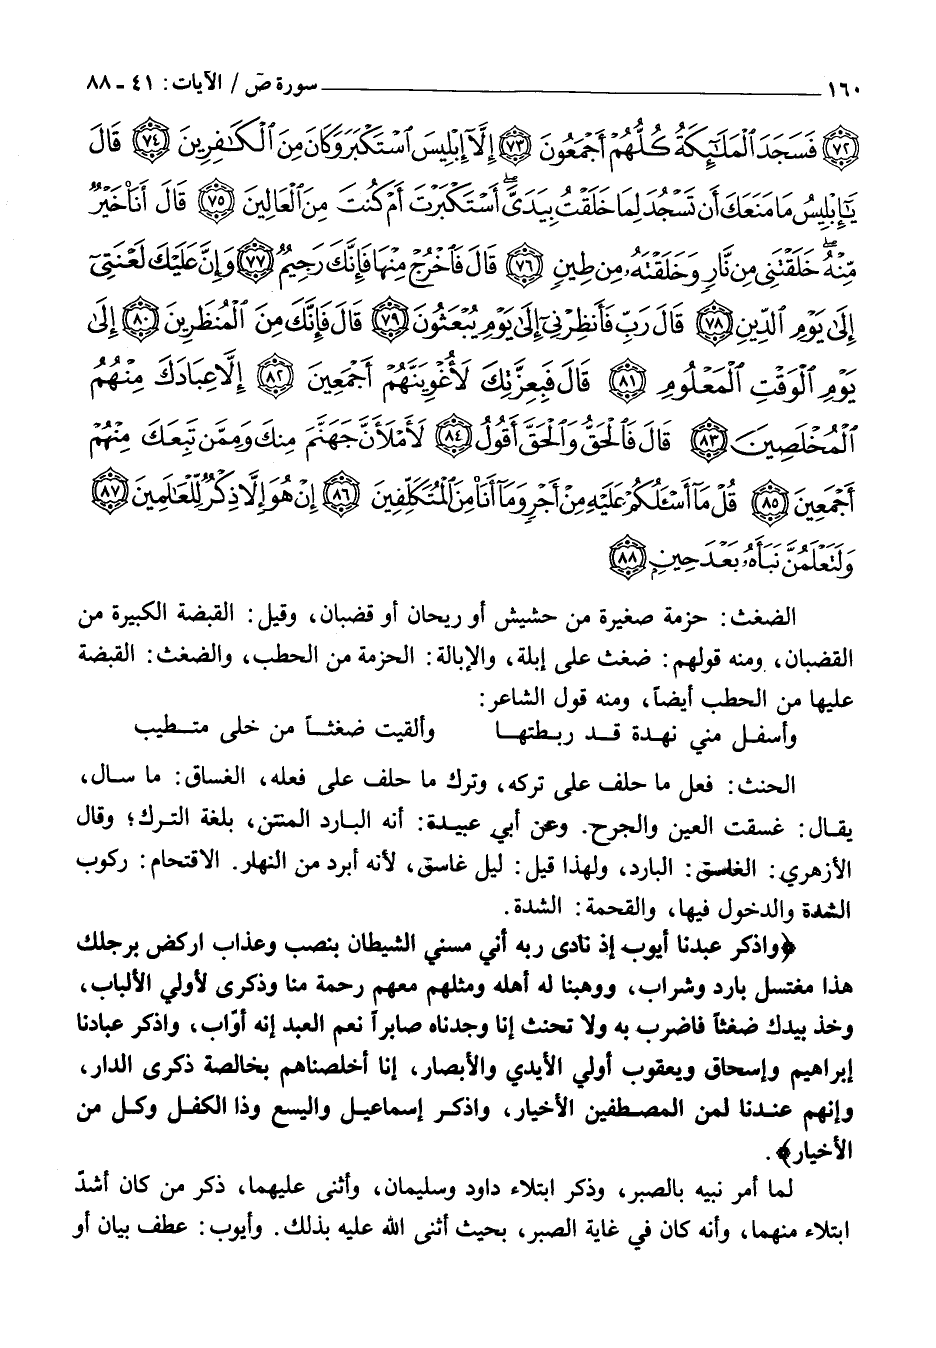 ١٦٠ سورة صۤ / الآيات: ٤١ ـ ٨٨
﴿٧٢﴾ فَسَجَدَ ٱلْمَلَٰٓئِكَةُ كُلُّهُمْ أَجْمَعُونَ ﴿٧٣﴾ إِلَّآ إِبْلِيسَ ٱسْتَكْبَرَ وَكَانَ مِنَ ٱلْكَٰفِرِينَ ﴿٧٤﴾ قَالَ
يَٰٓإِبْلِيسُ مَا مَنَعَكَ أَن تَسْجُدَ لِمَا خَلَقْتُ بِيَدَىَّۖ أَسْتَكْبَرْتَ أَمْ كُنتَ مِنَ ٱلْعَالِينَ ﴿٧٥﴾ قَالَ أَنَا۠ خَيْرٌ
مِّنْهُۖ خَلَقْتَنِى مِن نَّارٍ وَخَلَقْتَهُۥ مِن طِينٍ ﴿٧٦﴾ قَالَ فَٱخْرُجْ مِنْهَا فَإِنَّكَ رَجِيمٌ ﴿٧٧﴾ وَإِنَّ عَلَيْكَ لَعْنَتِىٓ
إِلَىٰ يَوْمِ ٱلدِّينِ ﴿٧٨﴾ قَالَ رَبِّ فَأَنظِرْنِىٓ إِلَىٰ يَوْمِ يُبْعَثُونَ ﴿٧٩﴾ قَالَ فَإِنَّكَ مِنَ ٱلْمُنظَرِينَ ﴿٨٠﴾ إِلَىٰ
يَوْمِ ٱلْوَقْتِ ٱلْمَعْلُومِ ﴿٨١﴾ قَالَ فَبِعِزَّتِكَ لَأُغْوِيَنَّهُمْ أَجْمَعِينَ ﴿٨٢﴾ إِلَّا عِبَادَكَ مِنْهُمُ
ٱلْمُخْلَصِينَ ﴿٨٣﴾ قَالَ فَٱلْحَقُّ وَٱلْحَقَّ أَقُولُ ﴿٨٤﴾ لَأَمْلَأَنَّ جَهَنَّمَ مِنكَ وَمِمَّن تَبِعَكَ مِنْهُمْ
أَجْمَعِينَ ﴿٨٥﴾ قُلْ مَآ أَسْـَٔلُكُمْ عَلَيْهِ مِنْ أَجْرٍ وَمَآ أَنَا۠ مِنَ ٱلْمُتَكَلِّفِينَ ﴿٨٦﴾ إِنْ هُوَ إِلَّا ذِكْرٌ لِّلْعَٰلَمِينَ ﴿٨٧﴾
وَلَتَعْلَمُنَّ نَبَأَهُۥ بَعْدَ حِينٍ ﴿٨٨﴾
الضغث: حزمة صغيرة من حشيش أو ريحان أو قضبان، وقيل: القبضة الكبيرة من
القضبان، ومنه قولهم: ضغث على إبلة، والإبالة: الحزمة من الحطب، والضغث: القبضة
عليها من الحطب أيضاً، ومنه قول الشاعر:
وأسفل مني نهدة قد ربطتها وألقيت ضغثاً من خلى متطيب
الحنث: فعل ما حلف على تركه، وترك ما حلف على فعله، الغساق: ما سال،
يقال: غسقت العين والجرح. وعن أبي عبيدة: أنه البارد المنتن، بلغة الترك؛ وقال
الأزهري: الغاسق: البارد، ولهذا قيل: ليل غاسق، لأنه أبرد من النهار. الاقتحام: ركوب
الشدة والدخول فيها، والقحمة: الشدة.
﴿واذكر عبدنا أيوب إذ نادى ربه أني مسني الشيطان بنصب وعذاب اركض برجلك
هذا مغتسل بارد وشراب، ووهبنا له أهله ومثلهم معهم رحمة منا وذكرى لأولي الألباب،
وخذ بيدك ضغثاً فاضرب به ولا تحنث إنا وجدناه صابراً نعم العبد إنه أوّاب، واذكر عبادنا
إبراهيم وإسحاق ويعقوب أولي الأيدي والأبصار، إنا أخلصناهم بخالصة ذكرى الدار،
وإنهم عندنا لمن المصطفين الأخيار، واذكر إسماعيل واليسع وذا الكفل وكل من
الأخيار﴾.
لما أمر نبيه بالصبر، وذكر ابتلاء داود وسليمان، وأثنى عليهما، ذكر من كان أشدّ
ابتلاء منهما، وأنه كان في غاية الصبر، بحيث أثنى الله عليه بذلك. وأيوب: عطف بيان أو